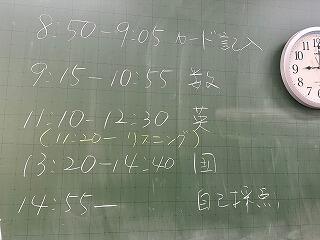 8:50-9:05 カード記入
9:15-10:55 数
11:10-12:30 英
(11:20- リスニング)
13:20-14:40 国
14:55- 自己採点